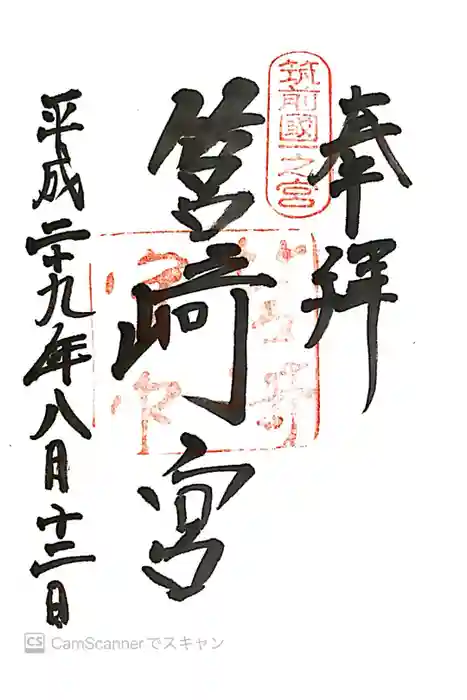 奉拝
筑前國一之宮
筥崎宮
平成二十九年八月十三日
CS CamScannerでスキャン